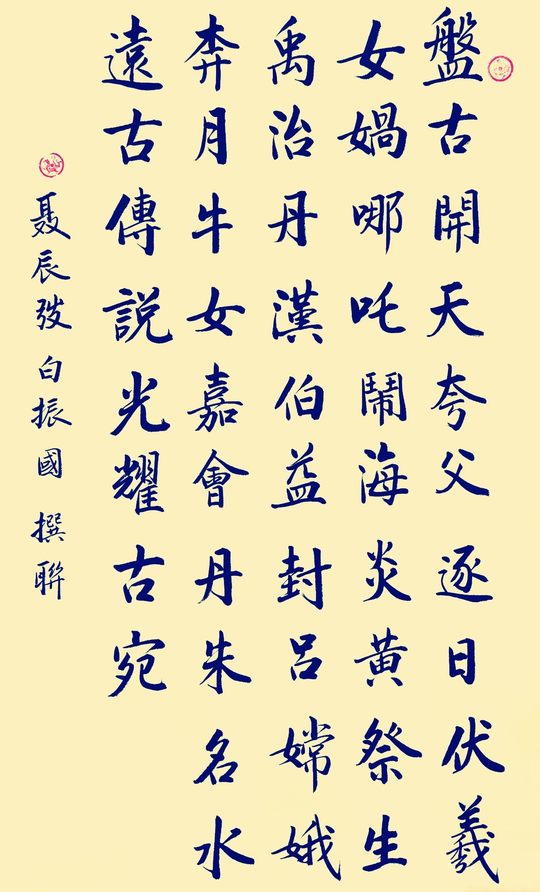 盤古開天夸父逐日伏羲
女媧哪吒鬧海炎黄祭生
禹治丹漢伯益封呂嫦娥
奔月牛女嘉會丹朱名水
遠古傳説光耀古宛
聂辰发白振國撰聯